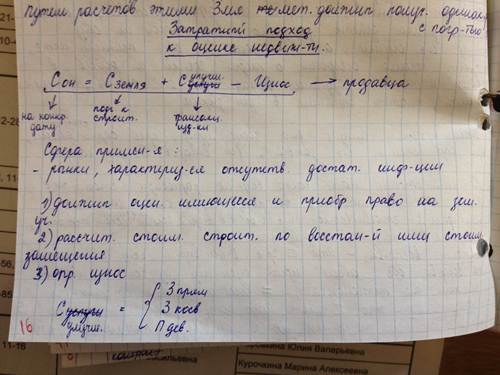 путем расчетов этими 3мя мет. должны получ. одинак.
с погр-тью
Затратный подход
к оценке недвиж-ти.
Сон = Сземля + Сулучш. – Износ → продавца
на конкр. дату
подг к строит.
трансакц. изд-ки
Сфера примен-я :
- рынки, характериз-ся отсутств достат. инф-ции
1) должны оцен. имеющееся и приобр право на зем.
уч.
2) рассчит. стоим. строит. по восстан-й или стоим.
замещения
3) опр. износ
С улучш. = { З прям
З косв
П дев.
16
11-16
Юлия Валерьевна
Курочкина Марина Алексеевна